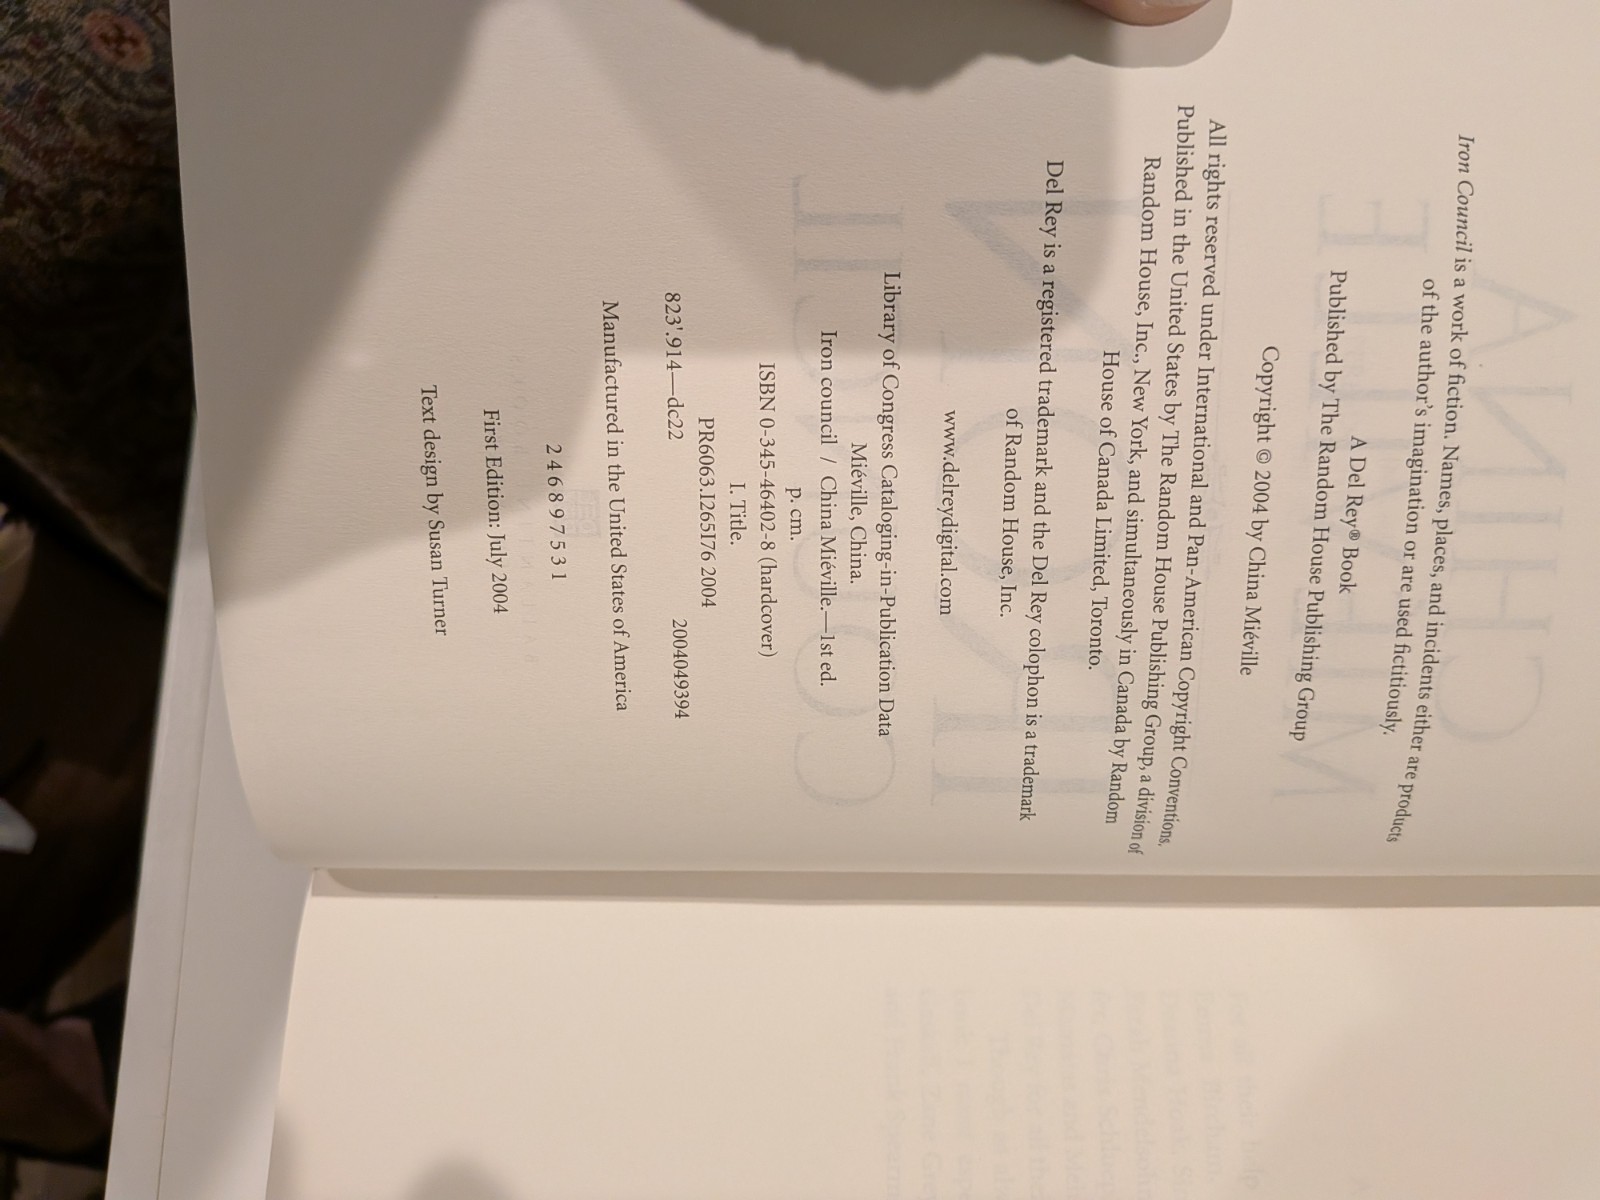 Iron Council is a work of fiction. Names, places, and incidents either are products
of the author's imagination or are used fictitiously.
A Del Rey® Book
Published by The Random House Publishing Group
Copyright © 2004 by China Miéville
All rights reserved under International and Pan-American Copyright Conventions.
Published in the United States by The Random House Publishing Group, a division of
Random House, Inc., New York, and simultaneously in Canada by Random
House of Canada Limited, Toronto.
Del Rey is a registered trademark and the Del Rey colophon is a trademark
of Random House, Inc.
www.delreydigital.com
Library of Congress Cataloging-in-Publication Data
Miéville, China.
Iron council / China Miéville.—1st ed.
p. cm.
ISBN 0-345-46402-8 (hardcover)
I. Title.
PR6063.I265I76 2004
823'.914—dc22 2004049394
Manufactured in the United States of America
2 4 6 8 9 7 5 3 1
First Edition: July 2004
Text design by Susan Turner